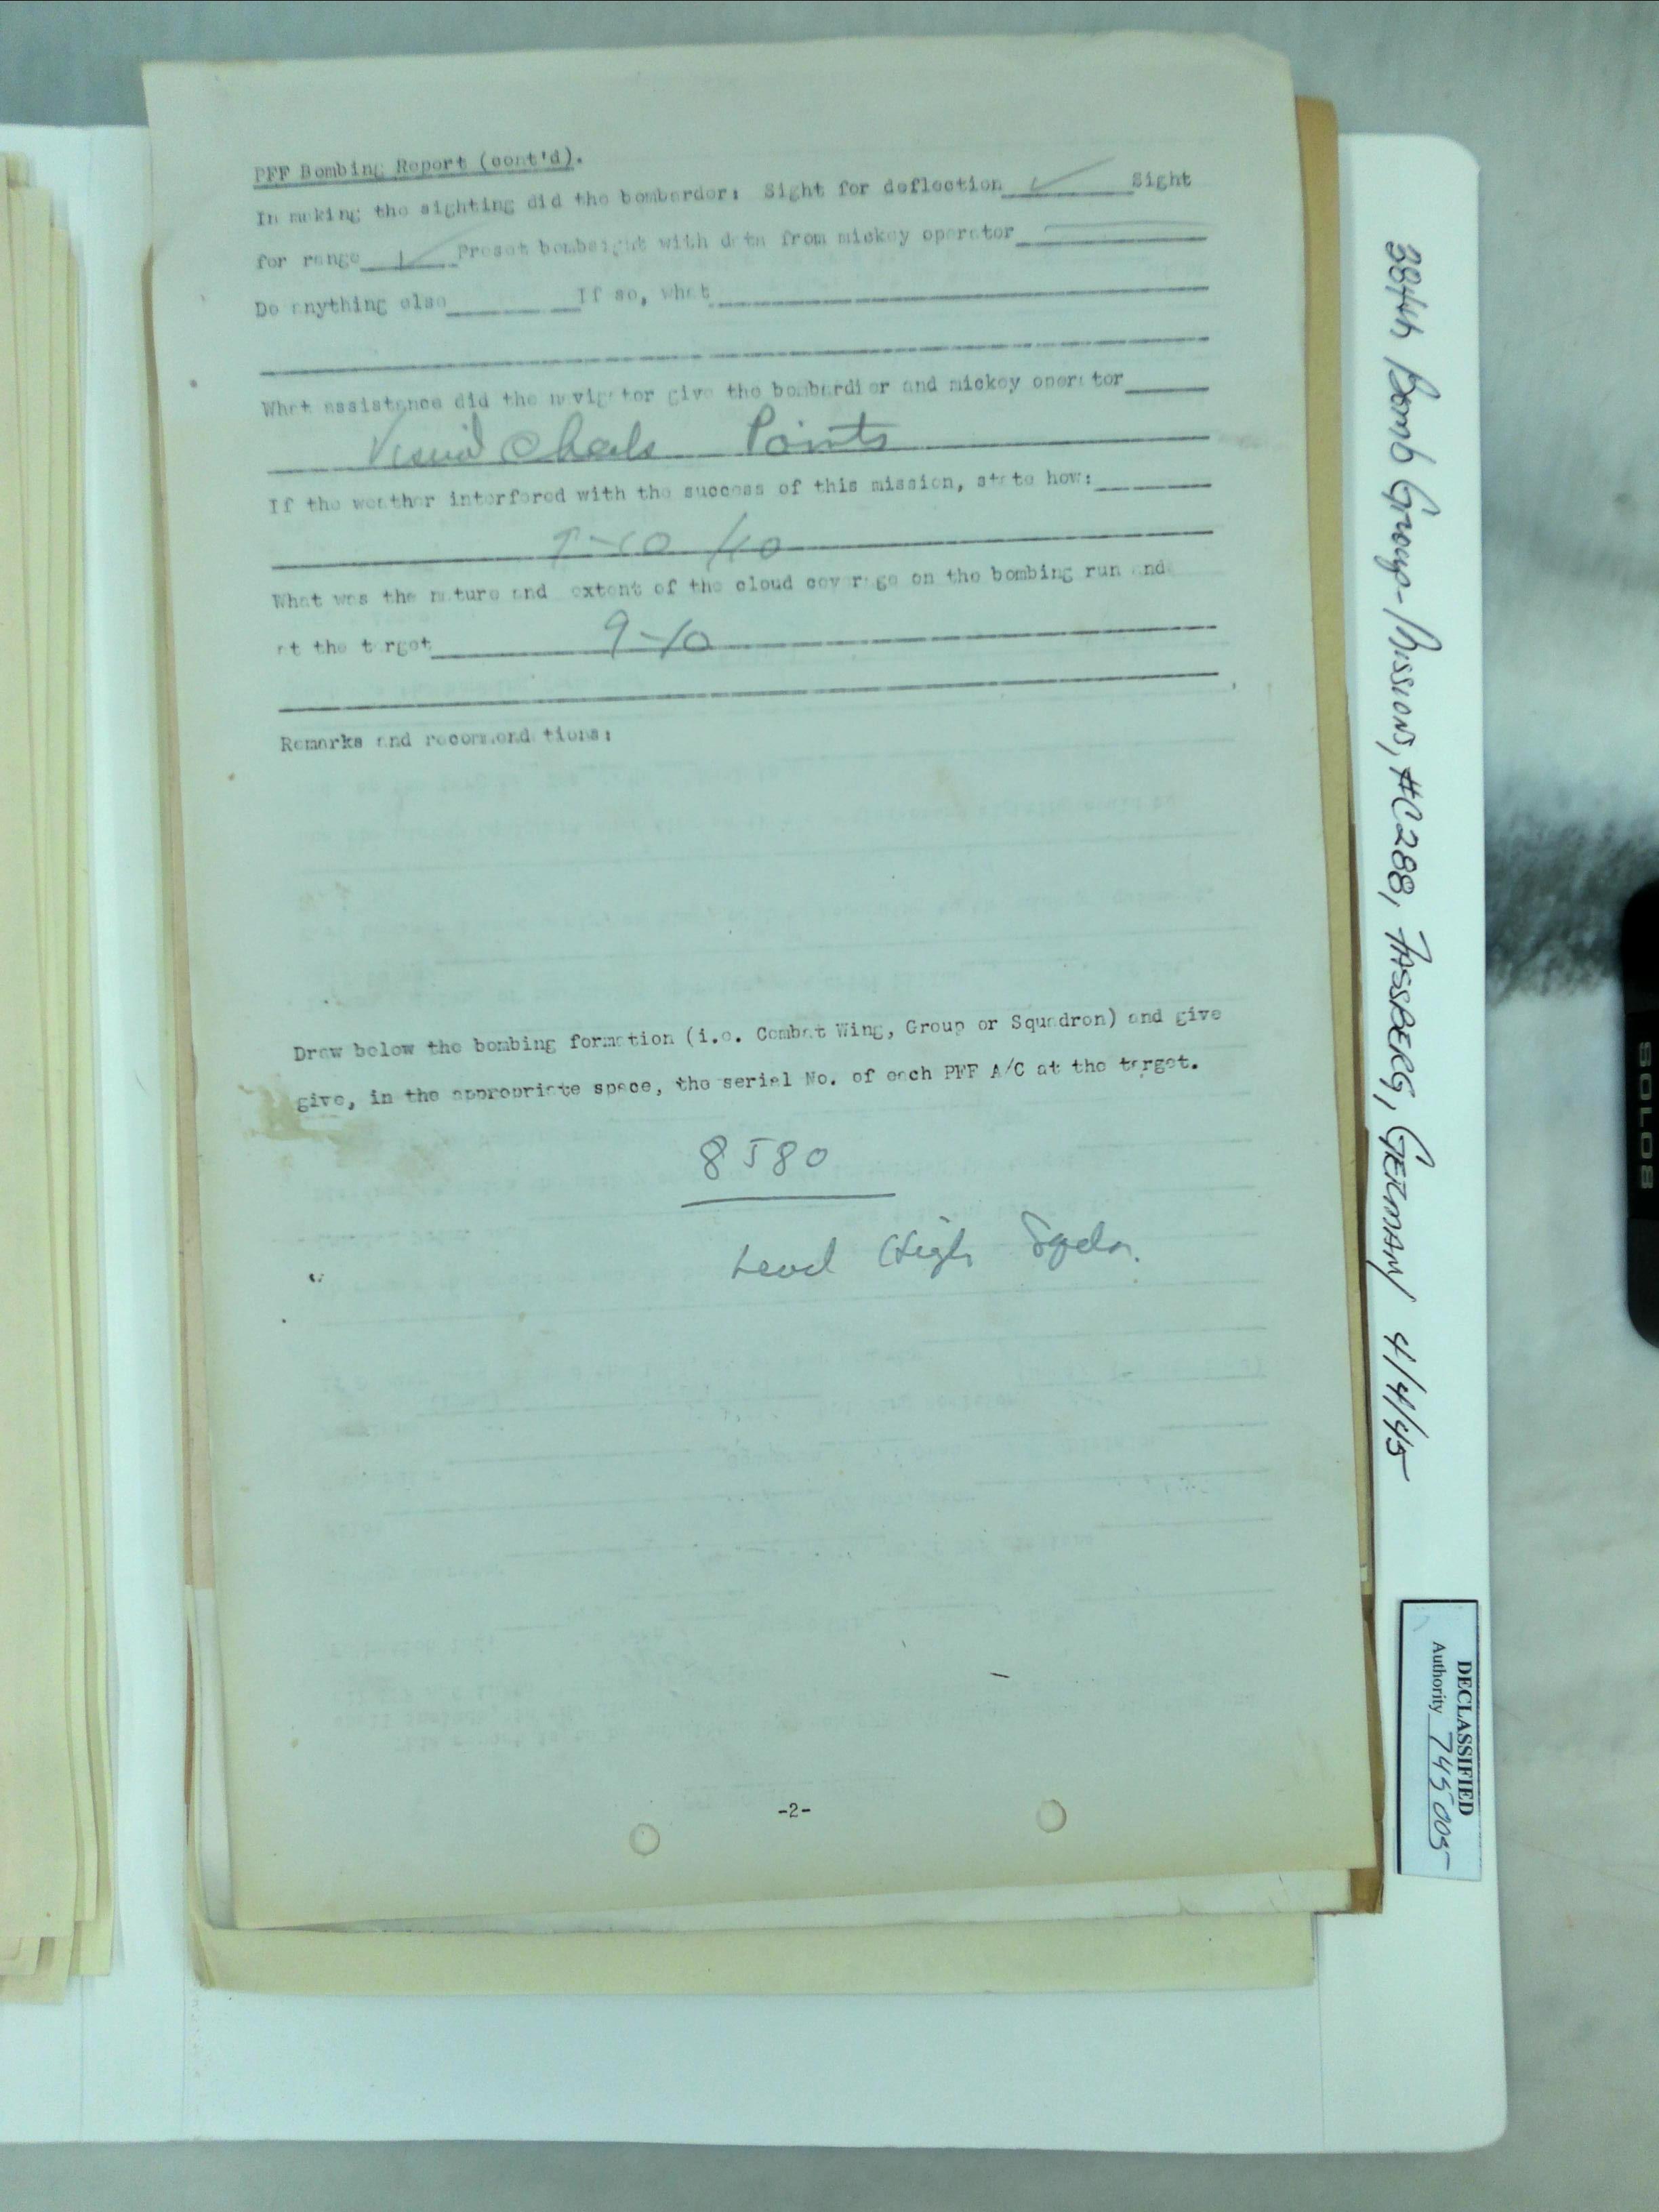 PFF Bombing Report (cont'd).
In making the sighting did the bomberder: Sight for deflection ✓ Sight
for range ✓ Preset bombsight with data from mickey operator
Do anything else If so, what
What assistance did the navigator give the bombardier and mickey operator
Visual Check Points
If the weather interfered with the success of this mission, state how:
/10
What was the nature and extent of the cloud coverage on the bombing run and
at the target 9-10
Remarks and recommendations:
Draw below the bombing formation (i.e. Combat Wing, Group or Squadron) and give
give, in the appropriate space, the serial No. of each PFF A/C at the target.
8580
Lead High Sqdn.
-2-
384th Bomb Group-Mission, #C288, FASSBERG, GERMANY 4/4/45
DECLASSIFIED
Authority 745005
SOLO8